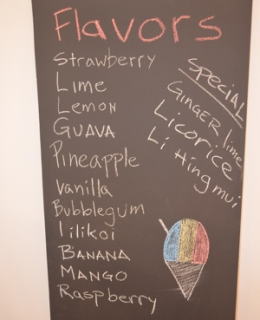 Flavors
Strawberry
Lime
Lemon
GUAVA
Pineapple
Vanilla
Bubblegum
Lilikoi
BANANA
MANGO
Raspberry
SPECIAL
GINGER lime
Licorice
Li Hing mui